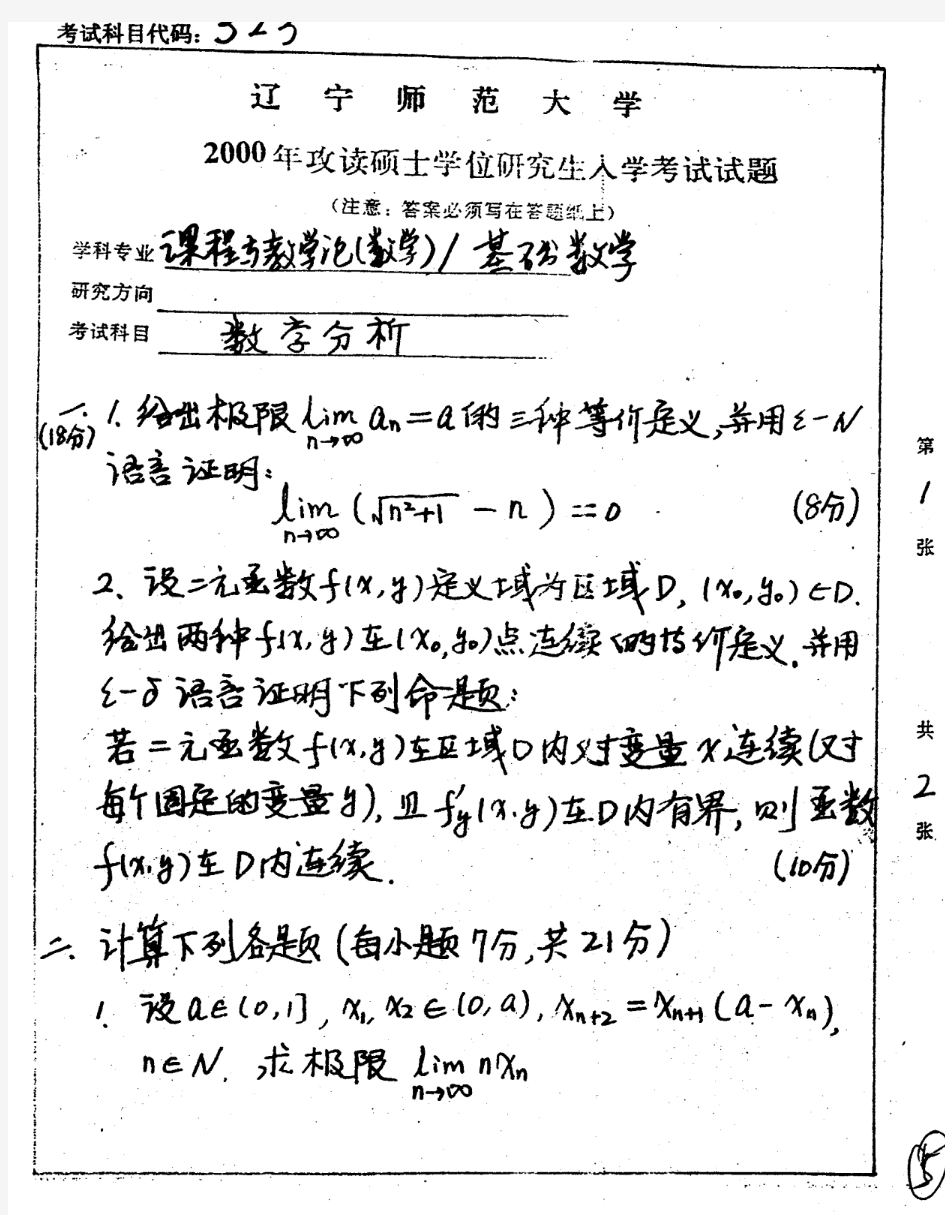 考试科目代码：323
辽宁师范大学
2000年攻读硕士学位研究生入学考试试题
（注意：答案必须写在答题纸上）
学科专业 课程与教学论(数学)/基础数学
研究方向
考试科目 数学分析
一. 1. 给出极限 lim an = a 的三种等价定义,并用 ε-N
n→∞
(18分)
语言证明:
lim (√n²+1 - n) = 0 (8分)
n→∞
2. 设二元函数f(x,y)定义域为区域D, (x₀,y₀)∈D.
给出两种f(x,y)在(x₀,y₀)点连续的等价定义.并用
ε-δ语言证明下列命题:
若二元函数f(x,y)在区域D内对变量x连续(对
每个固定的变量y),且f'y(x,y)在D内有界,则函数
f(x,y)在D内连续. (10分)
二. 计算下列各题(每小题7分,共21分)
1. 设a∈(0,1], x₁,x₂∈(0,a), xn+2 = xn+1(a-xn),
n∈N. 求极限 lim nxn
n→∞
第1张
共2张
⑤